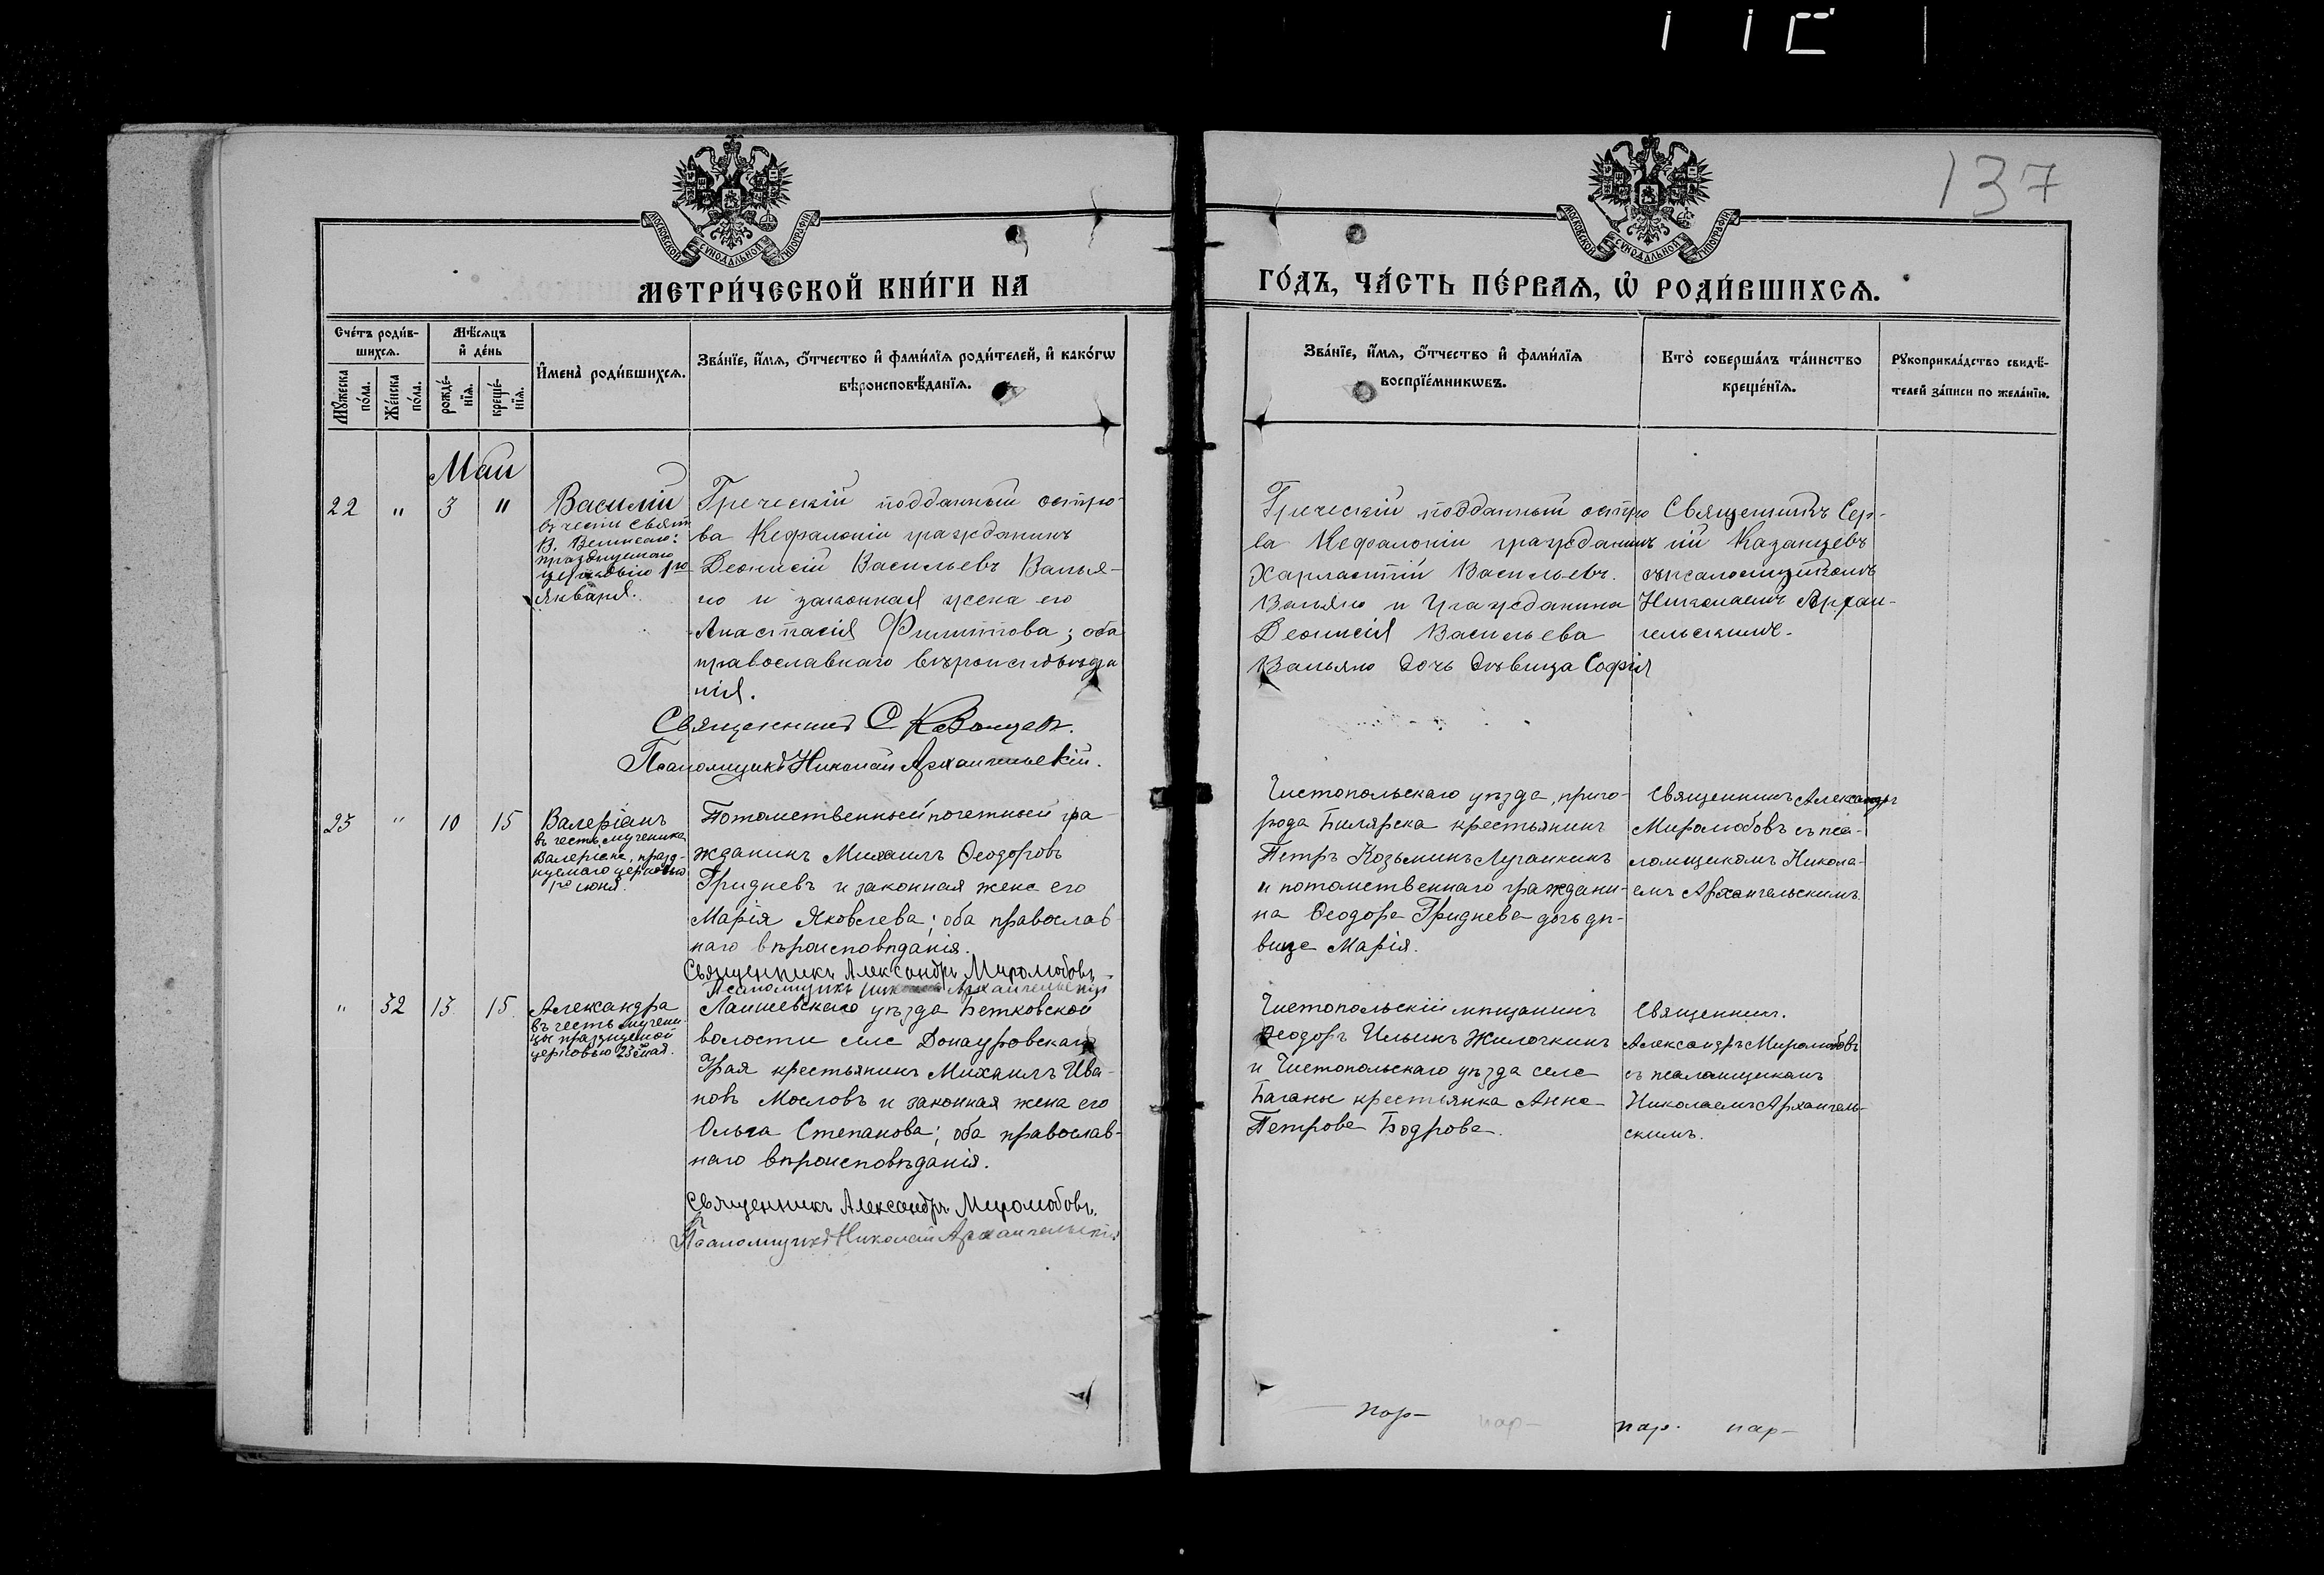 137
МОСКОВСКОЙ СѴНОДАЛЬНОЙ ТИПОГРАФІИ
МОСКОВСКОЙ СѴНОДАЛЬНОЙ ТИПОГРАФІИ
МЕТРИ́ЧЕСКОЙ КНИ́ГИ НА
ГО́ДЪ, ЧА́СТЬ ПЕ́РВАѦ, Ѡ҆ РОДИ́ВШИХСѦ.
Сче́тъ роди́в-
шихсѧ.
Мѣ́сѧцъ
и҆ де́нь
Мꙋ́жеска
по́ла.
Же́нска
по́ла.
рожде́-
нїѧ.
креще́-
нїѧ.
И҆мена̀ роди́вшихсѧ.
Зва́нїе, и҆́мѧ, ѻ҆́тчество и҆ фами́лїѧ роди́телей, и҆ како́гѡ
вѣроисповѣ́данїѧ.
Зва́нїе, и҆́мѧ, ѻ҆́тчество и҆ фами́лїѧ
воспрїе́мникѡвъ.
Кто̀ соверша́лъ та́инство
креще́нїѧ.
Рꙋкоприкла́дство свидѣ́-
телей за́писи по жела́нїю.
Май
22 " 3 "
Василій
въ честь Свят.
В. Великаго:
празднуемаго
церковію 1го
Января.
Греческій подданный остро-
ва Кефалоніи гражданинъ
Деонисій Васильевъ Валья-
но и законная жена его
Анастасія Филиппова; оба
православнаго вѣроисповѣда
нія.
Священникъ С. Казанцев.
Псаломщикъ Николай Архангельскій.
Греческій подданный остро
ва Кефалоніи гражданинъ
Харлампій Васильевъ
Вальяно и гражданина
Деонисія Васильева
Вальяно дочь дѣвица Софія
Священникъ Сер-
гій Казанцевъ
съ псаломщикомъ
Николаемъ Архан-
гельскимъ.
23 " 10 15
Валеріанъ
въ честь мученика
Валеріана, празд-
нуемаго церковью
1го іюня.
Потомственный почетный гра-
жданинъ Михаилъ Ѳеодоровъ
Гридневъ и законная жена его
Марія Яковлева; оба православ-
наго вѣроисповѣданія.
Священникъ Александръ Миролюбовъ
Псаломщикъ Николай Архангельскій
Чистопольскаго уѣзда, приго-
рода Билярска крестьянинъ
Петръ Козьминъ
и потомственнаго граждани-
на Ѳеодора Гриднева дочь дѣ-
вица Марія.
Священникъ Александръ
Миролюбовъ съ пса-
ломщикомъ Никола-
емъ Архангельскимъ.
" 32 13 15
Александра
въ честь мучени-
цы празднуемой
церковью
Лаишевскаго уѣзда Бетковской
волости села Донауровскаго
крестьянинъ Михаилъ Ива-
новъ Мословъ и законная жена его
Ольга Степанова; оба православ-
наго вѣроисповѣданія.
Священникъ Александръ Миролюбовъ.
Псаломщикъ Николай Архангельскій
Чистопольскій мѣщанинъ
Ѳеодоръ Ильинъ Жилочкинъ
и Чистопольскаго уѣзда села
Баганы крестьянка Анна
Петрова Бодрова.
Священникъ
Александръ Миролюбовъ
съ псаломщикомъ
Николаемъ Архангель-
скимъ.
пар- пар- пар- пар-